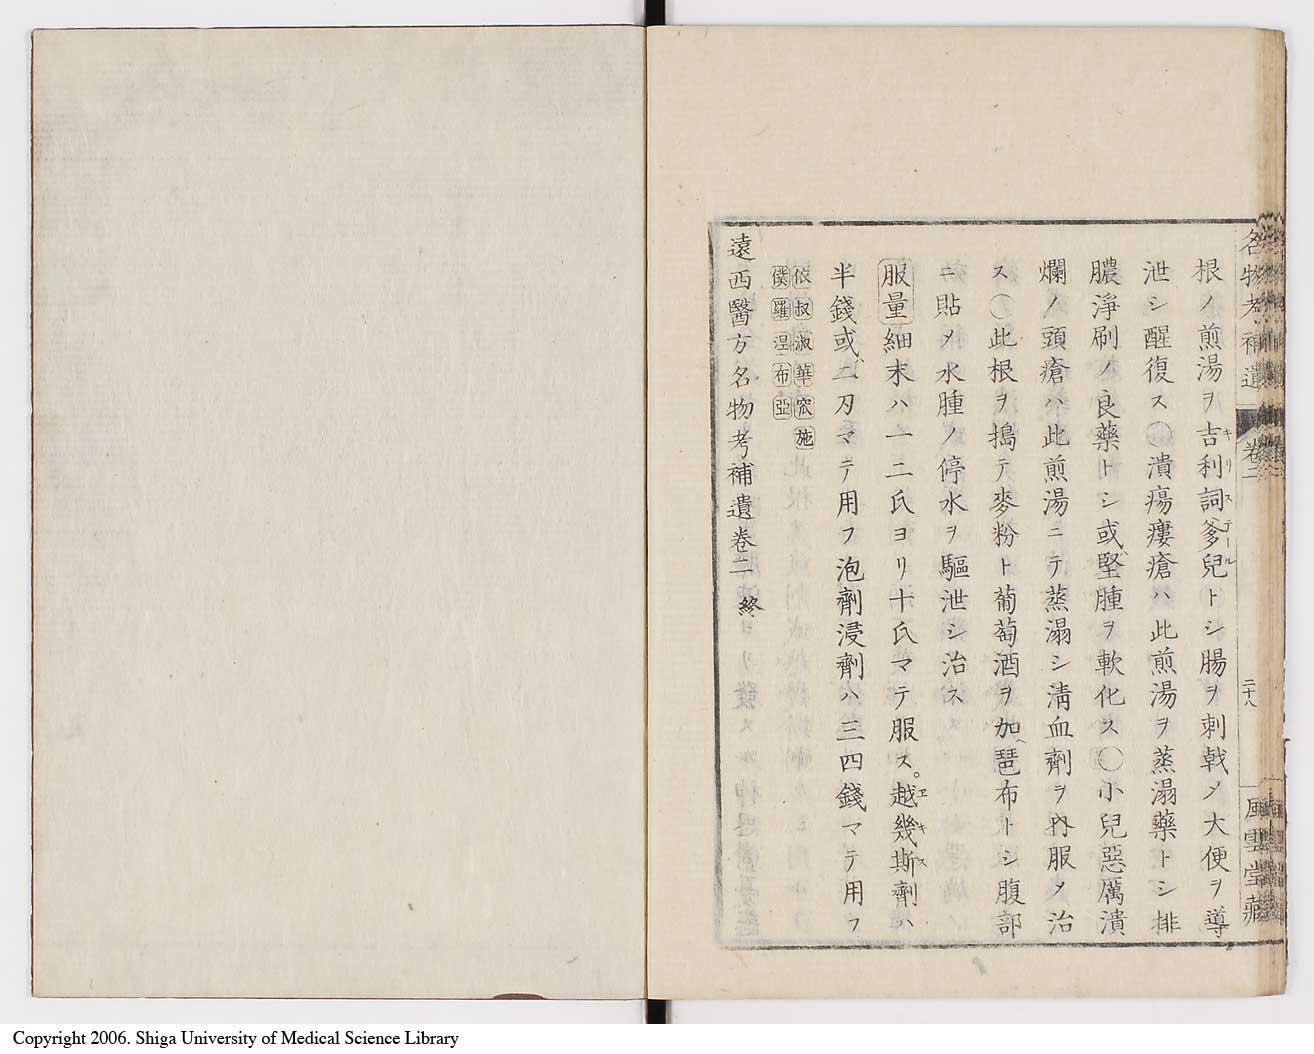 名物考補遺 卷二 二十八 風雲堂藏
根ノ煎湯ヲ吉利詞爹兒トシ腸ヲ刺戟メ大便ヲ導
キリステール
泄シ醒復ス○潰瘍瘻瘡ハ此煎湯ヲ蒸溻藥トシ排
膿淨刷ノ良藥トシ或ハ堅腫ヲ軟化ス○小兒惡厲潰
爛ノ頭瘡ハ此煎湯ニテ蒸溻シ淸血劑ヲ內服メ治
ス○此根ヲ搗テ麥粉ト葡萄酒ヲ加ヘ琶布トシ腹部
ニ貼メ水腫ノ停水ヲ驅泄シ治ス
服量 細末ハ一二氏ヨリ十氏マテ服ス。越幾斯劑ハ
エキス
半錢或ハ二刃マテ用フ泡劑浸劑ハ三四錢マテ用フ
依叔淑華宏施
僕羅涅布亞
遠西醫方名物考補遺卷二 終
Copyright 2006. Shiga University of Medical Science Library